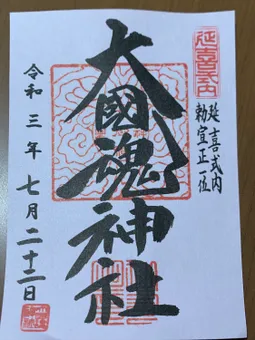 延喜式内
延喜式内
勅宣正一位
大國魂神社
令和三年七月二十二日